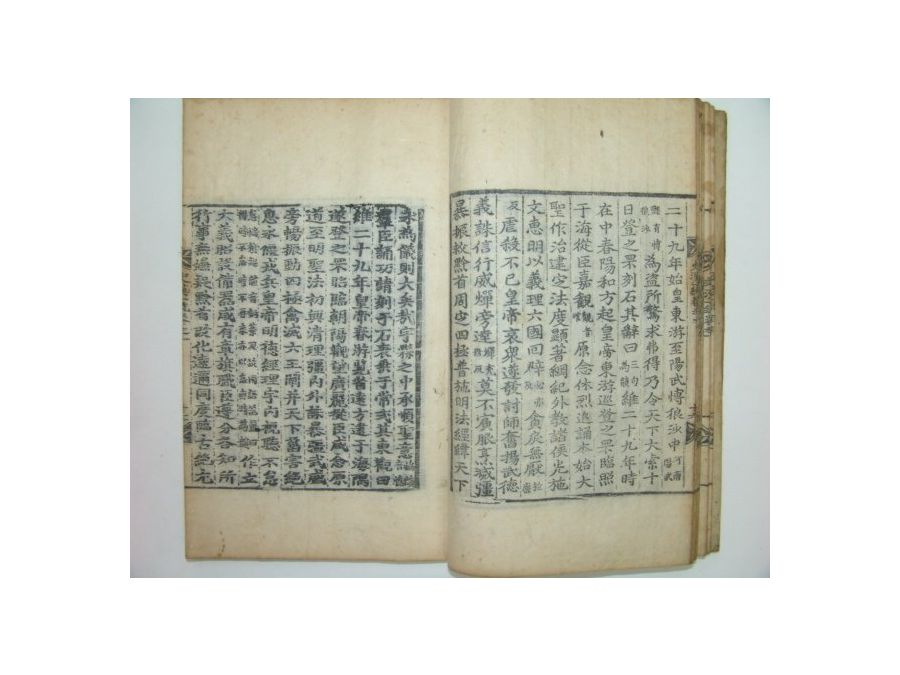 二十九年始皇東游至陽武博狼沙中
為盜所驚求弗得乃令天下大索十
日登之罘刻石其辭曰維二十九年時
在中春陽和方起皇帝東游巡登之罘臨照
于海從臣嘉觀原念休烈追誦本始大
聖作治建定法度顯著綱紀外教諸侯光施
文惠明以義理六國回辟貪戾無厭
虐殺不已皇帝哀衆遂發討師奮揚武德
義誅信行威燀旁達莫不賓服烹滅彊
暴振救黔首周定四極普施明法經緯天下
永為儀則大矣哉宇縣之中承順聖意
羣臣誦功請刻于石表垂于常式其東觀曰
維二十九年皇帝春游覽省遠方逮于海隅
遂登之罘昭臨朝陽觀望廣麗從臣咸念原
道至明聖法初興清理疆內外誅暴彊武威
旁暢振動四極禽滅六王闡并天下甾害絕
息永偃戎兵皇帝明德經理宇內視聽不怠
作立
大義昭設備器咸有章旗職臣遵分各知所
行事無嫌疑黔首改化遠邇同度臨古絕尤